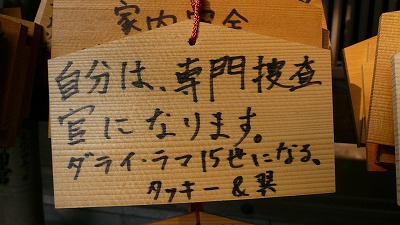 家内安全
自分は、専門捜査
官になります。
ダライ・ラマ15世になる、
タッキー&翼